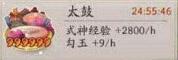 太鼓 24:55:46
式神经验 +2800/h
勾玉 +9/h